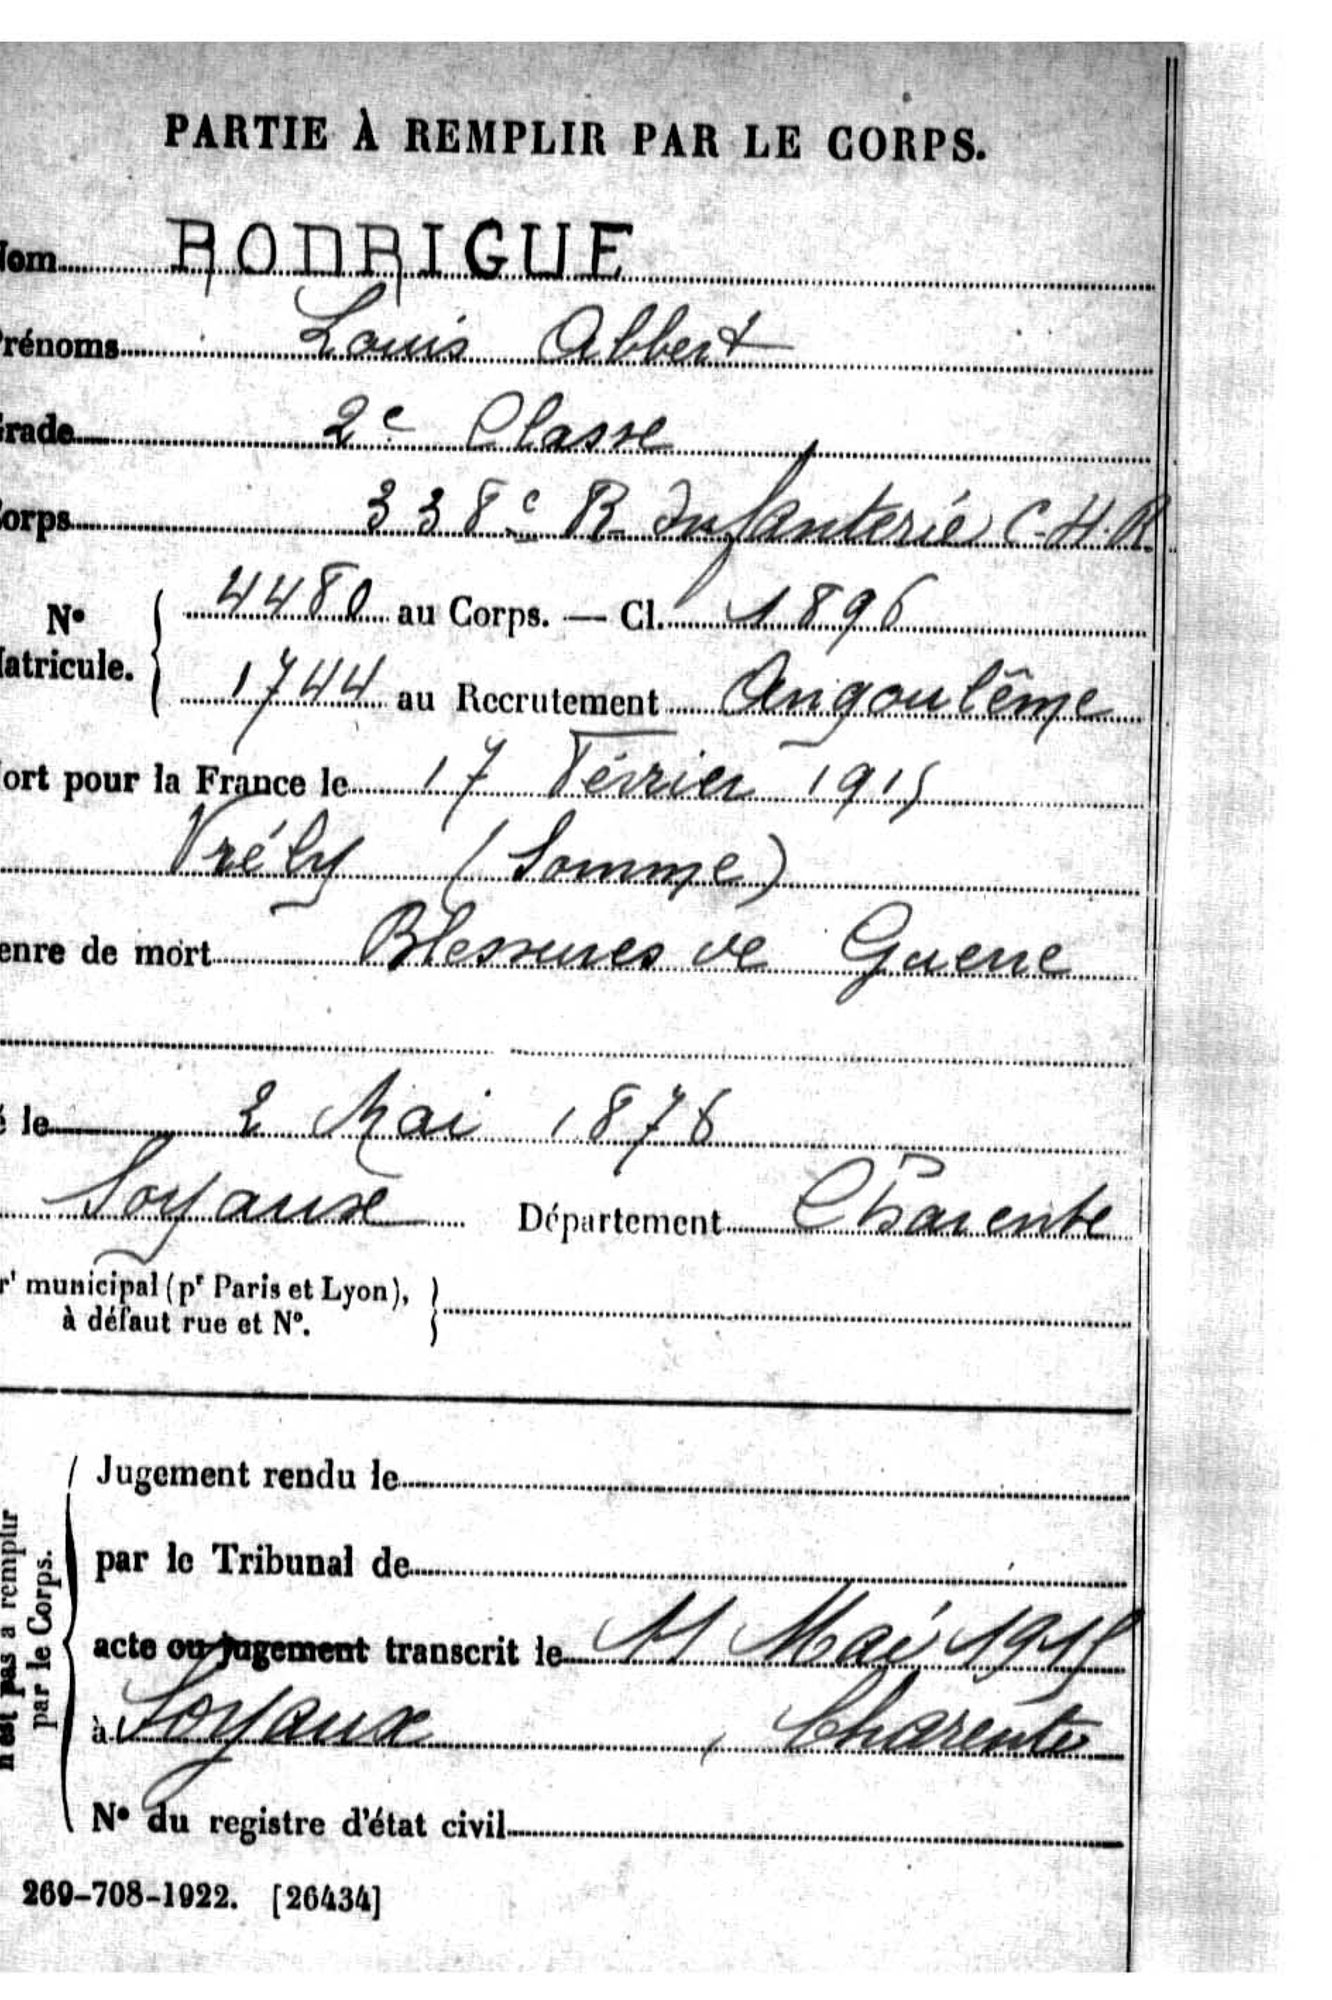 PARTIE À REMPLIR PAR LE CORPS.
Nom RODRIGUE
Prénoms Louis Albert
Grade 2e Classe
Corps 338e R. Infanterie C.H.R.
No Matricule. { 4480 au Corps. — Cl. 1896
1744 au Recrutement Angoulême
ort pour la France le 17 Février 1915
Vrély (Somme)
enre de mort Blessures de Guerre
é le 2 Mai 1876
Soyaux Département Charente
rt municipal (pr Paris et Lyon), }
à défaut rue et No.
Jugement rendu le
par le Tribunal de
acte ou jugement transcrit le 11 Mai 1915
à Soyaux, Charente
No du registre d'état civil
n'est pas à remplir
par le Corps.
269-708-1922. [26434]